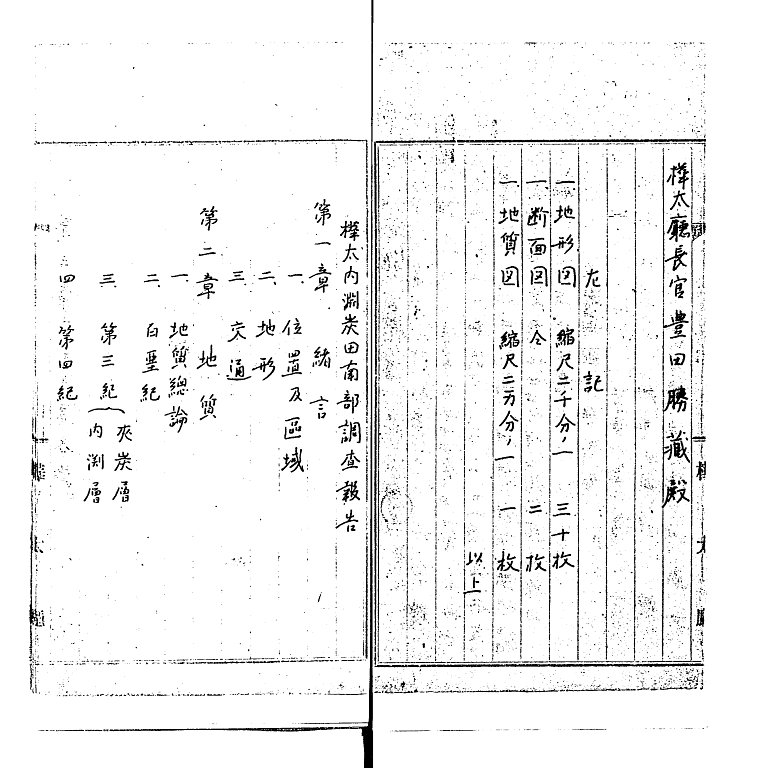 樺太廳長官豊田勝藏殿
左記
一 地形図 縮尺二千分ノ一 三十枚
一 断面図 仝 二枚
一 地質図 縮尺二万分ノ一 一枚
以上
樺太内淵炭田南部調査報告
第一章 緒言
一、位置及區域
二、地形
三、交通
第二章 地質
一、地質總論
二、白堊紀
三、第三紀
夾炭層
内渕層
四 第四紀
樺太廳